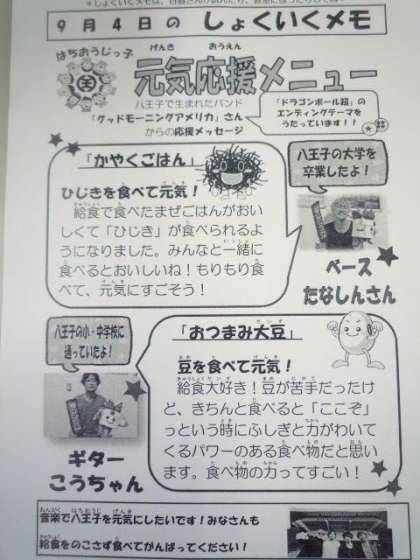 9月4日の しょくいくメモ
はちおうじっ子
元気応援メニュー
げんき おうえん
八王子で生まれたバンド
「グッドモーニングアメリカ」さん
からの応援メッセージ
「ドラゴンボール超」の
エンディングテーマを
うたっています!!
「かやくごはん」
ひじきを食べて元気!
給食で食べたまぜごはんがおい
しくて「ひじき」が食べられるよ
うになりました。みんなと一緒に
食べるとおいしいね!もりもり食
べて、元気にすごそう!
八王子の大学を
卒業したよ!
ベース
たなしんさん
八王子の小・中学校に
通っていたよ!
ギター
こうちゃん
「おつまみ大豆」
豆を食べて元気!
給食大好き!豆が苦手だったけ
ど、きちんと食べると「ここぞ」
っという時にふしぎと力がわいて
くるパワーのある食べ物だと思い
ます。食べ物の力ってすごい!
音楽で八王子を元気にしたいです!みなさんも
給食をのこさず食べてがんばってください!